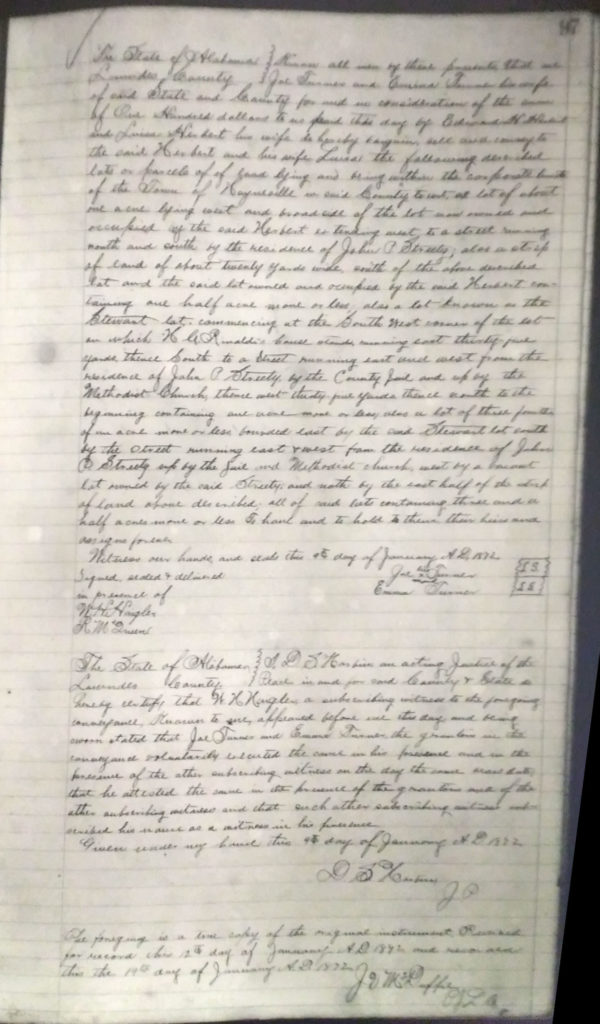 97
The State of Alabama } Know all men by these presents, that we
Lowndes County } Joe Turner and Emma Turner his wife
of said State and County for and in consideration of the sum
of One Hundred dollars to us paid this day by Edward H. Herbert
and Luisa Herbert his wife do hereby bargain, sell and convey to
the said Herbert and his wife Luisa the following described
lots or parcels of land lying and being within the corporate limits
of the Town of Hayneville in said County to wit, a lot of about
one acre lying west and broadside of the lot now owned and
occupied by the said Herbert extending west, to a street running
north and south by the residence of John P Streety, also a strip
of land of about twenty yards wide, south of the above described
lot and the said lot owned and occupied by the said Herbert con-
taining one half acre more or less, also a lot known as the
Stewart lot, commencing at the South West corner of the lot
on which H C house stands running east thirty five
yards thence South to a Street running east and west from the
residence of John P. Streety, by the County Jail and up by the
Methodist Church, thence west thirty five yards thence north to the
beginning containing one acre more or less, also a lot of three fourths
of an acre more or less, bounded east by the said Stewart lot south
by the street running east & west from the residence of John
P Streety up by the Jail and Methodist church, west by a vacant
lot owned by the said Streety, and north by the east half of the strip
of land above described, all of said lots containing three and a
half acres more or less To have and to hold to them their heirs and
assigns forever
Witness our hands and seals this 9th day of January A.D. 1872
Signed, sealed & delivered Joe his x Turner {L.S.}
in presence of Emma Turner {L.S.}
W. H. Haigler
R McQueen
The State of Alabama } I, D S an acting Justice of the
Lowndes County } Peace in and for said County & State do
hereby certify that W. H. Haigler, a subscribing witness to the foregoing
conveyance, known to me, appeared before me this day and being
sworn stated that Joe Turner and Emma Turner the grantors in the
conveyance voluntarily executed the same in his presence and in the
presence of the other subscribing witness on the day the same bears date,
that he attested the same in the presence of the grantors and of the
other subscribing witness and that such other subscribing witness sub-
scribed his name as a witness in his presence
Given under my hand this 9th day of January A.D 1872
D S
J P
The foregoing is a true copy of the original instrument Received
for record this 12th day of January A.D 1872 and recorded
this the 19th day of January A.D. 1872
J V McDuffie